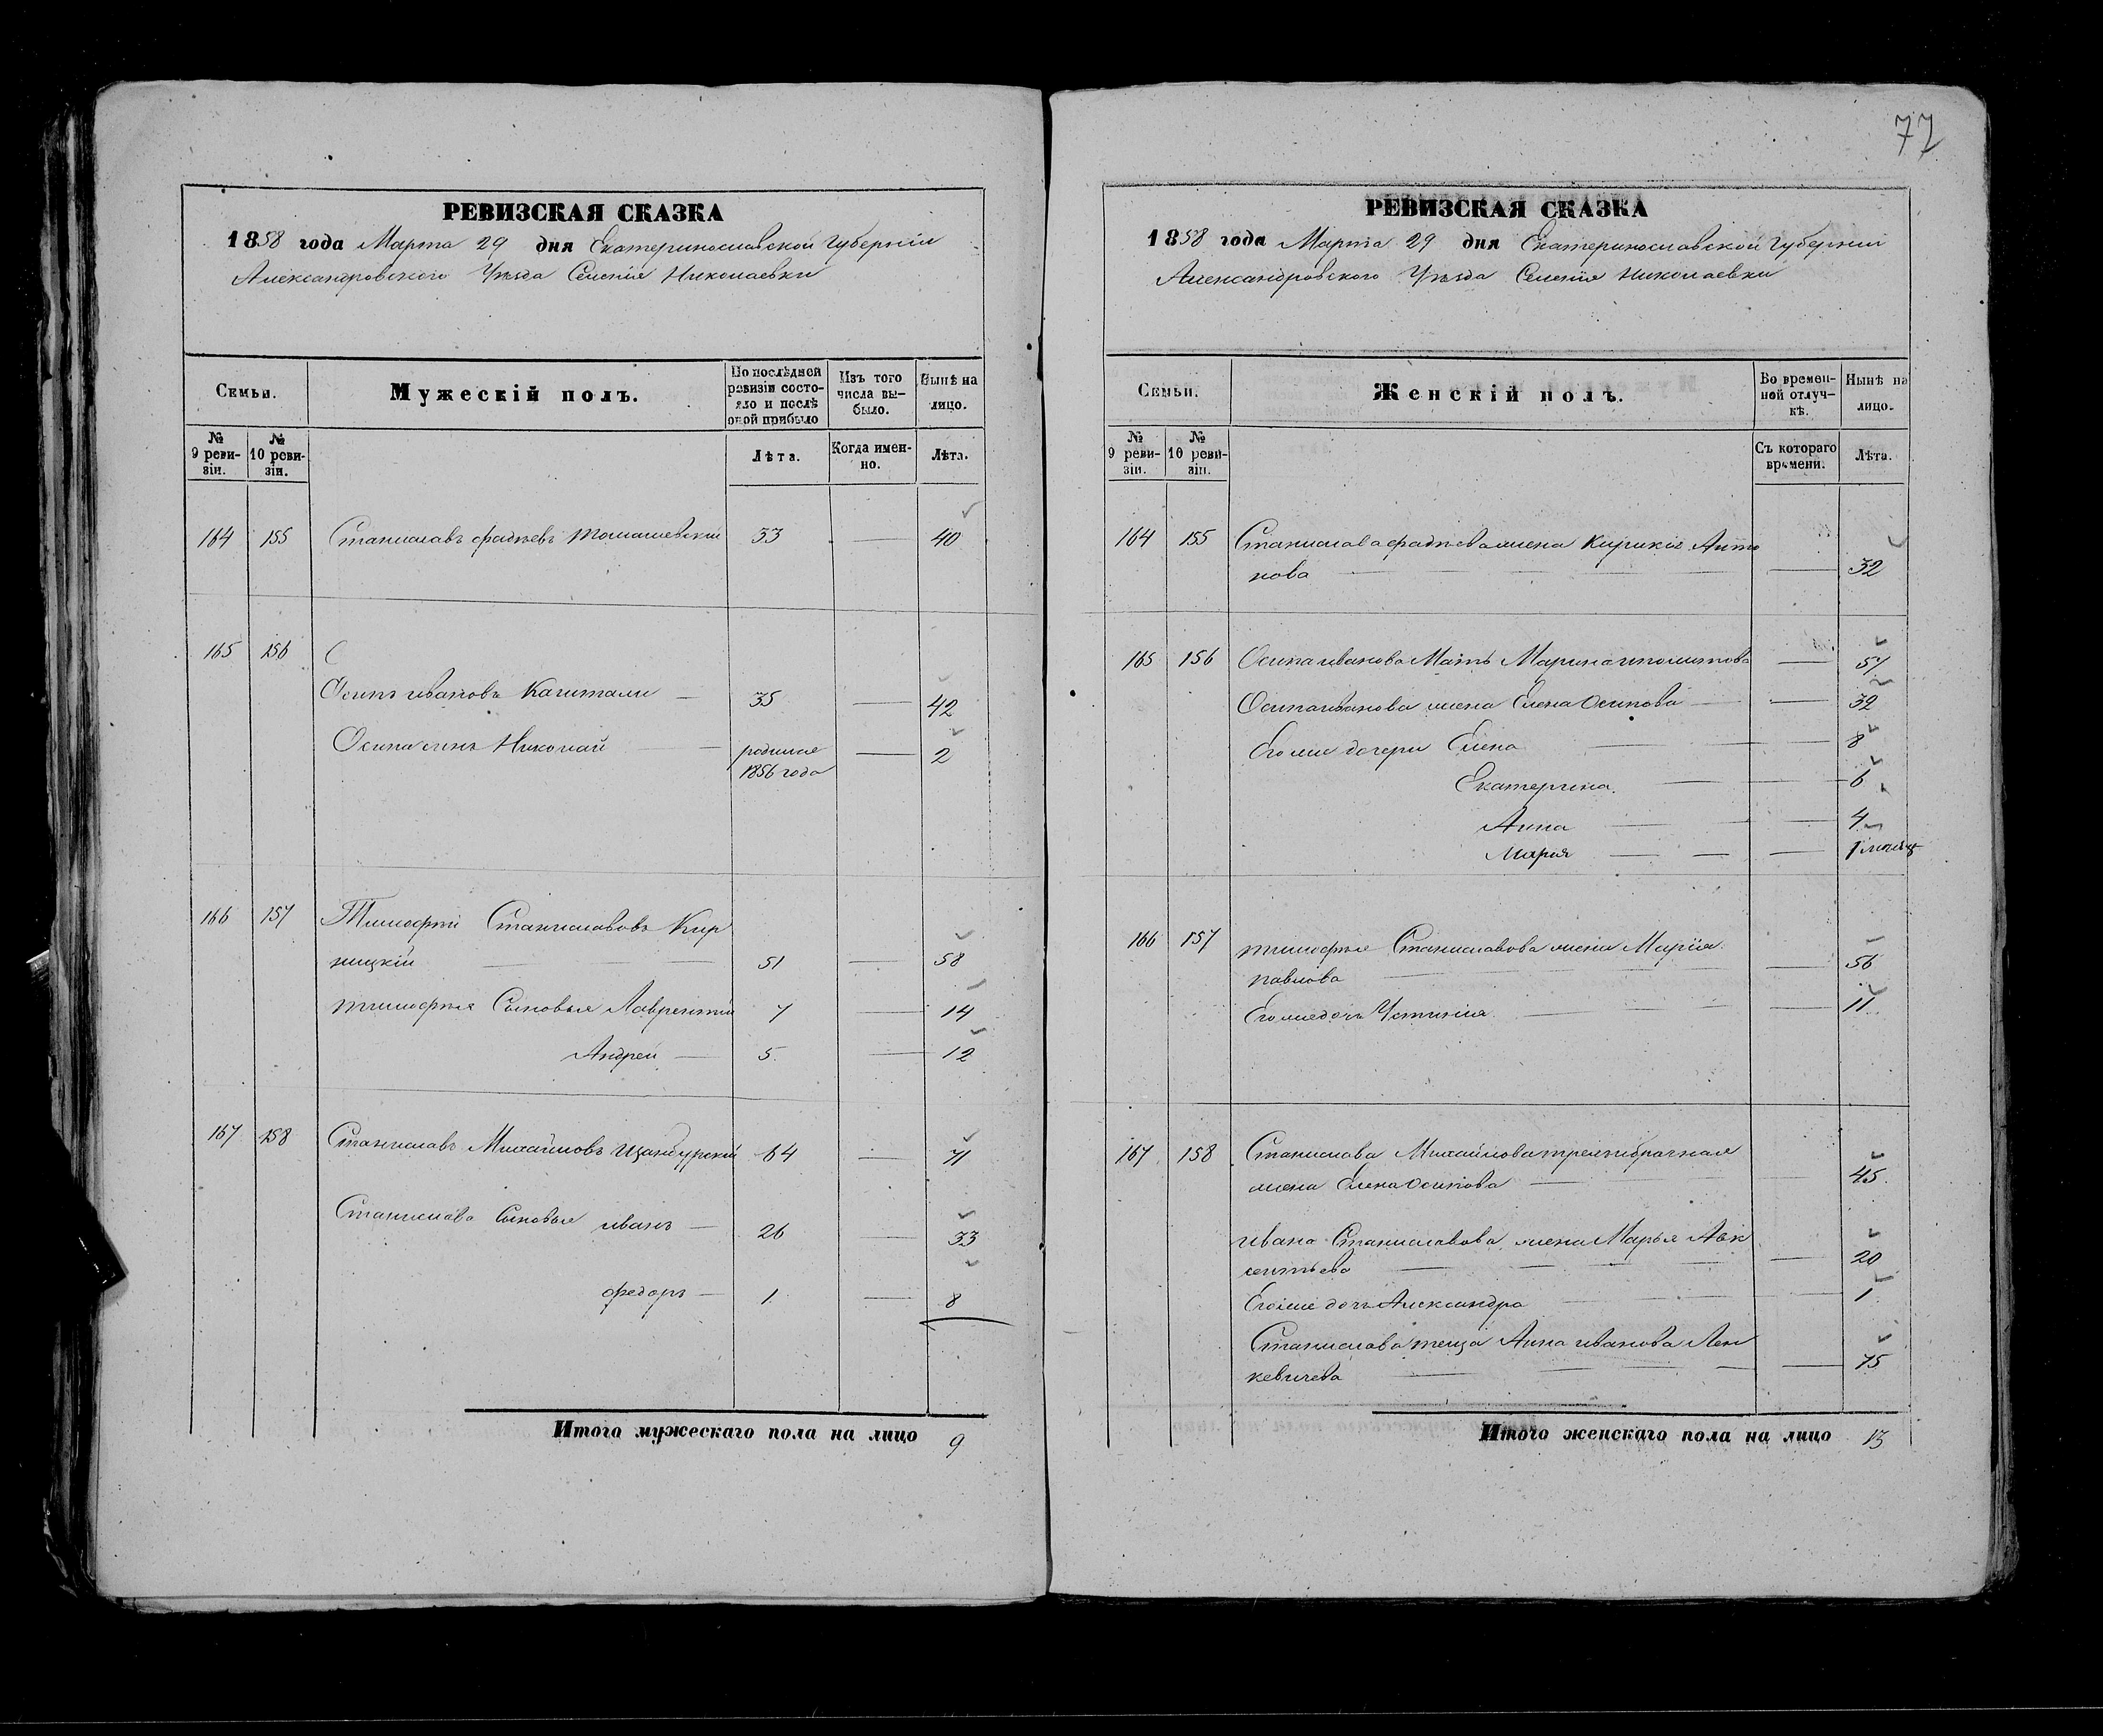 77
РЕВИЗСКАЯ СКАЗКА
1858 года Марта 29 дня Екатеринославской Губерніи
Александровского Уѣзда Селенія Николаевки
Семьи.
Мужескій полъ.
По послѣдней ревизіи состояло и послѣ оной прибыло
Изъ того числа выбыло.
Нынѣ на лицо.
№ 9 ревизіи.
№ 10 ревизіи.
Лѣта.
Когда именно.
Лѣта.
164 155 Станиславъ фадѣевъ томашевскій 33 — 40
165 156 С
Осипъ ивановъ Качитали — 35 — 42
Осипа сынъ Николай — родился — 2
1856 года
166 157 Тимофѣй Станиславовъ Кир
ницкій — 51 — 58
тимофѣя Сыновья Лаврентій 7 — 14
Андрей — 5 — 12
167 158 Станиславъ Михайловъ 64 — 71
Станислава Сыновья иванъ — 26 — 33
федоръ — 1 — 8
Итого мужескаго пола на лицо 9
РЕВИЗСКАЯ СКАЗКА
1858 года Марта 29 дня Екатеринославской Губерніи
Александровского Уѣзда Селенія Николаевки
Семьи.
Женскій полъ.
Во временной отлучкѣ.
Нынѣ на лицо.
№ 9 ревизіи.
№ 10 ревизіи.
Съ котораго времени.
Лѣта.
164 155 Станислава фадѣева жена Анто
нова — — 32
165 156 Осипа иванова Мать Марина иполитова — 57
Осипа иванова жена Елена Осипова — — 32
Его же дочери Елена — — 8
Екатерина — — 6
Анна — — 4
Марія — — 1 мѣсяц
166 157 тимофѣя Станиславова жена Марія
павлова — — 56
Его же дочь Устинія — — 11
167 158 Станислава Михайлова третьебрачная
жена Елена Осипова — — 45
ивана Станиславова жена Марья Авк
сентьева — — 20
Его же дочь Александра — 1
Станислава теща Анна иванова Лен
кевичева — — 75
Итого женскаго пола на лицо 13